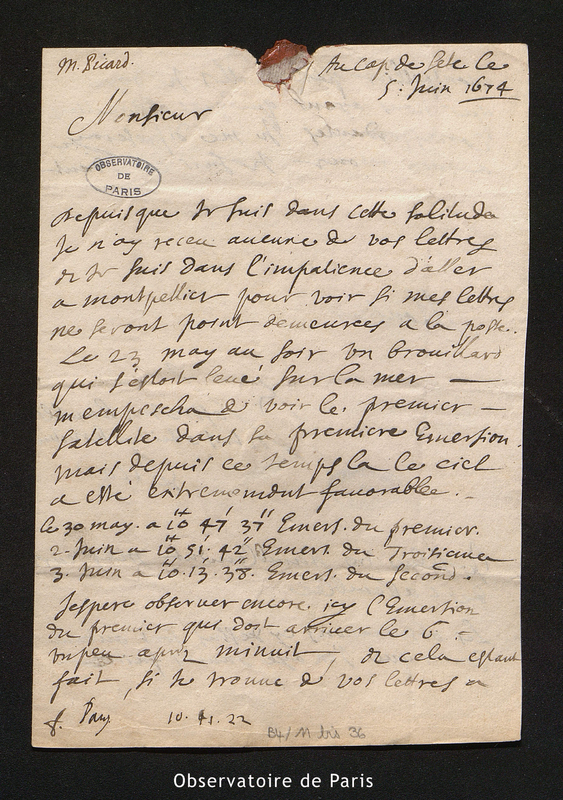 M. Picard.
Au cap. de Sete le
5. Juin 1674
Monsieur
OBSERVATOIRE
DE
PARIS
Depuis que Je suis dans cette solitude
Je n'ay receu aucune de vos lettres
et Je suis dans l'impatience d'aller
a montpellier pour voir si mes lettres
ne seront point demeurees a la poste.
Le 23 may au soir un brouillard
qui s'estoit levé sur la mer —
m'empescha de voir le premier —
satellite dans sa premiere Emersion.
mais depuis ce temps la le ciel
a esté extremement favorable. -
le 30 may. a 10 47' 37" Emers. du premier.
2. Juin a 10 51' 42" Emers. du Troisieme
3. Juin a 10. 13. 38. Emers. du second.
J'espere observer encore icy l'Emersion
du premier qui doit arriver le 6 -
un peu apres minuit, et cela estant
fait, si Je trouve de vos lettres a
10. 41. 22
B4/11 bis 36
Observatoire de Paris